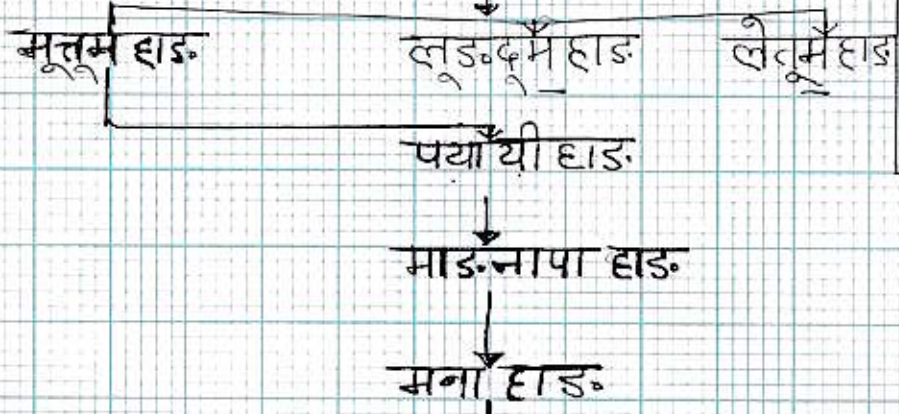 मूत्तूमै हाङ लूङदूमै हाङ लेतूमै हाङ
पयाँयी हाङ
माङनापा हाङ
मना हाङ